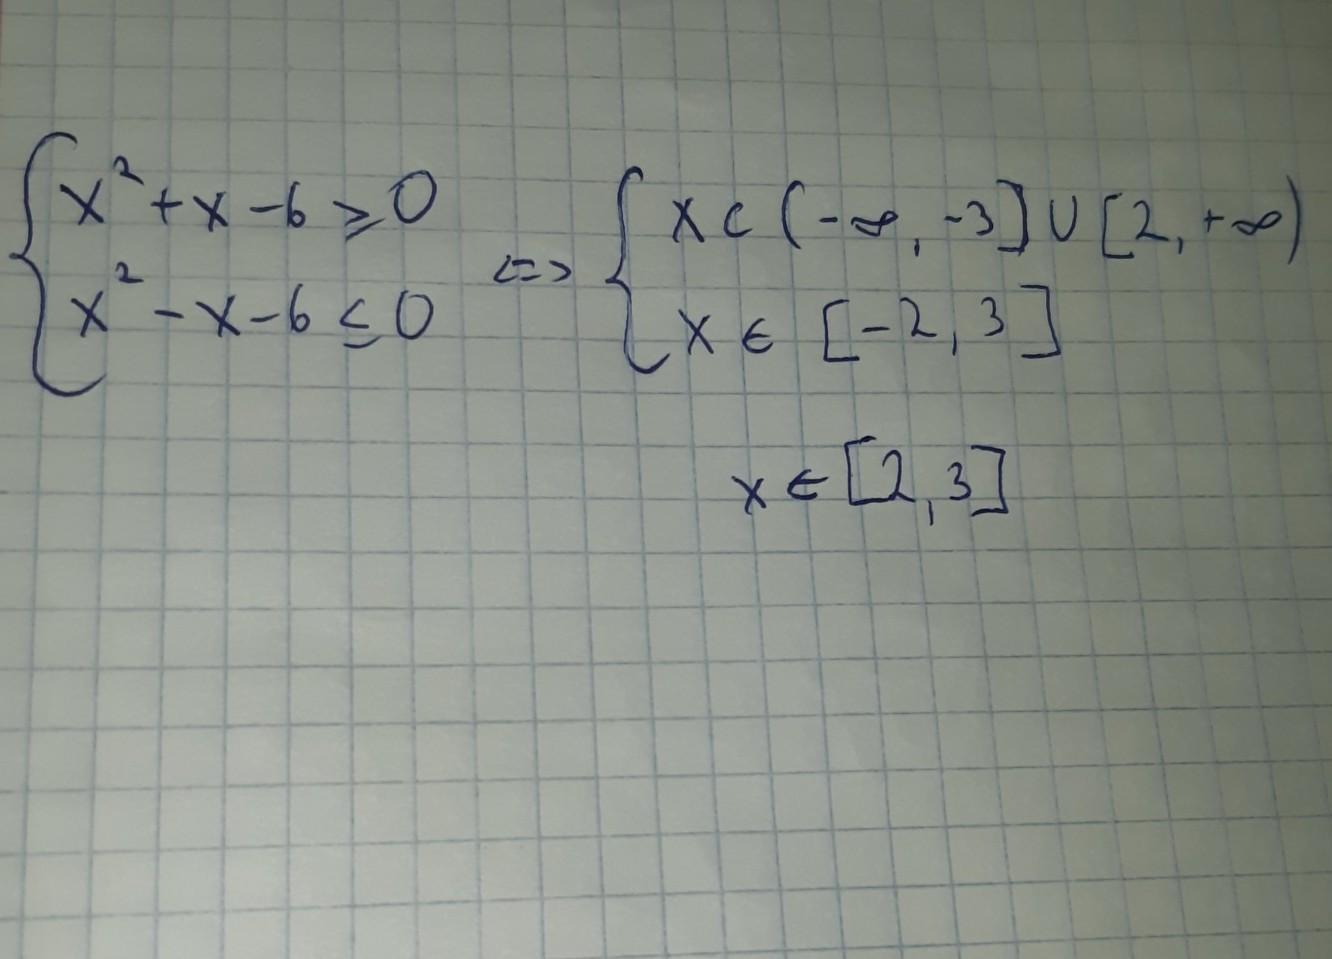 { x² + x - 6 ≥ 0
x² - x - 6 ≤ 0 <=> { x ∈ (-∞, -3] ∪ [2, +∞)
x ∈ [-2, 3]
x ∈ [2, 3]